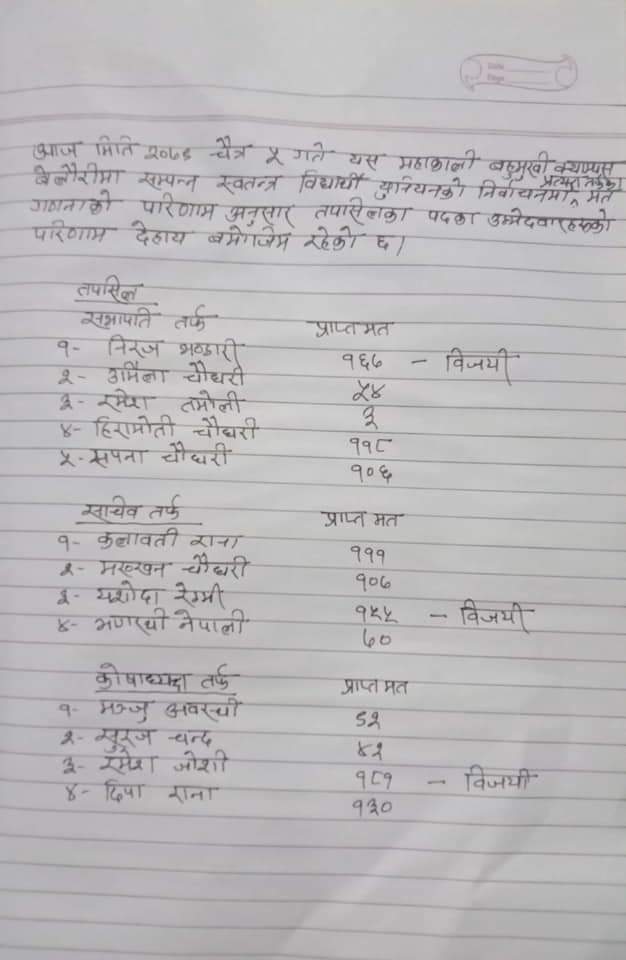 आज मिति २०७९ चैत्र ५ गते यस महाकाली बहुमुखी क्याम्पस
बेलौरीमा सम्पन्न स्वतन्त्र विद्यार्थी युनियनको निर्वाचनमा, प्रत्यक्ष तर्फका मत
गणनाको परिणाम अनुसार तपसिलका पदका उम्मेदवारहरुको
परिणाम देहाय बमोजिम रहेको छ।
तपसिल
सभापति तर्फ प्राप्त मत
१- निरज भण्डारी १६७ - विजयी
२- उर्मिला चौधरी ५४
३- रमेश तमोली ३
४- हिरामोती चौधरी ११८
५- सपना चौधरी १०६
सचिव तर्फ प्राप्त मत
१- कलावती राना १११
२- मख्खन चौधरी १०७
३- यशोदा रेग्मी १५५ - विजयी
४- नेपाली ७०
कोषाध्यक्ष तर्फ प्राप्त मत
१- मञ्जु अवस्थी ९२
२- सुरज चन्द ४२
३- रमेश जोशी १८१ - विजयी
४- दिपा राना १३०